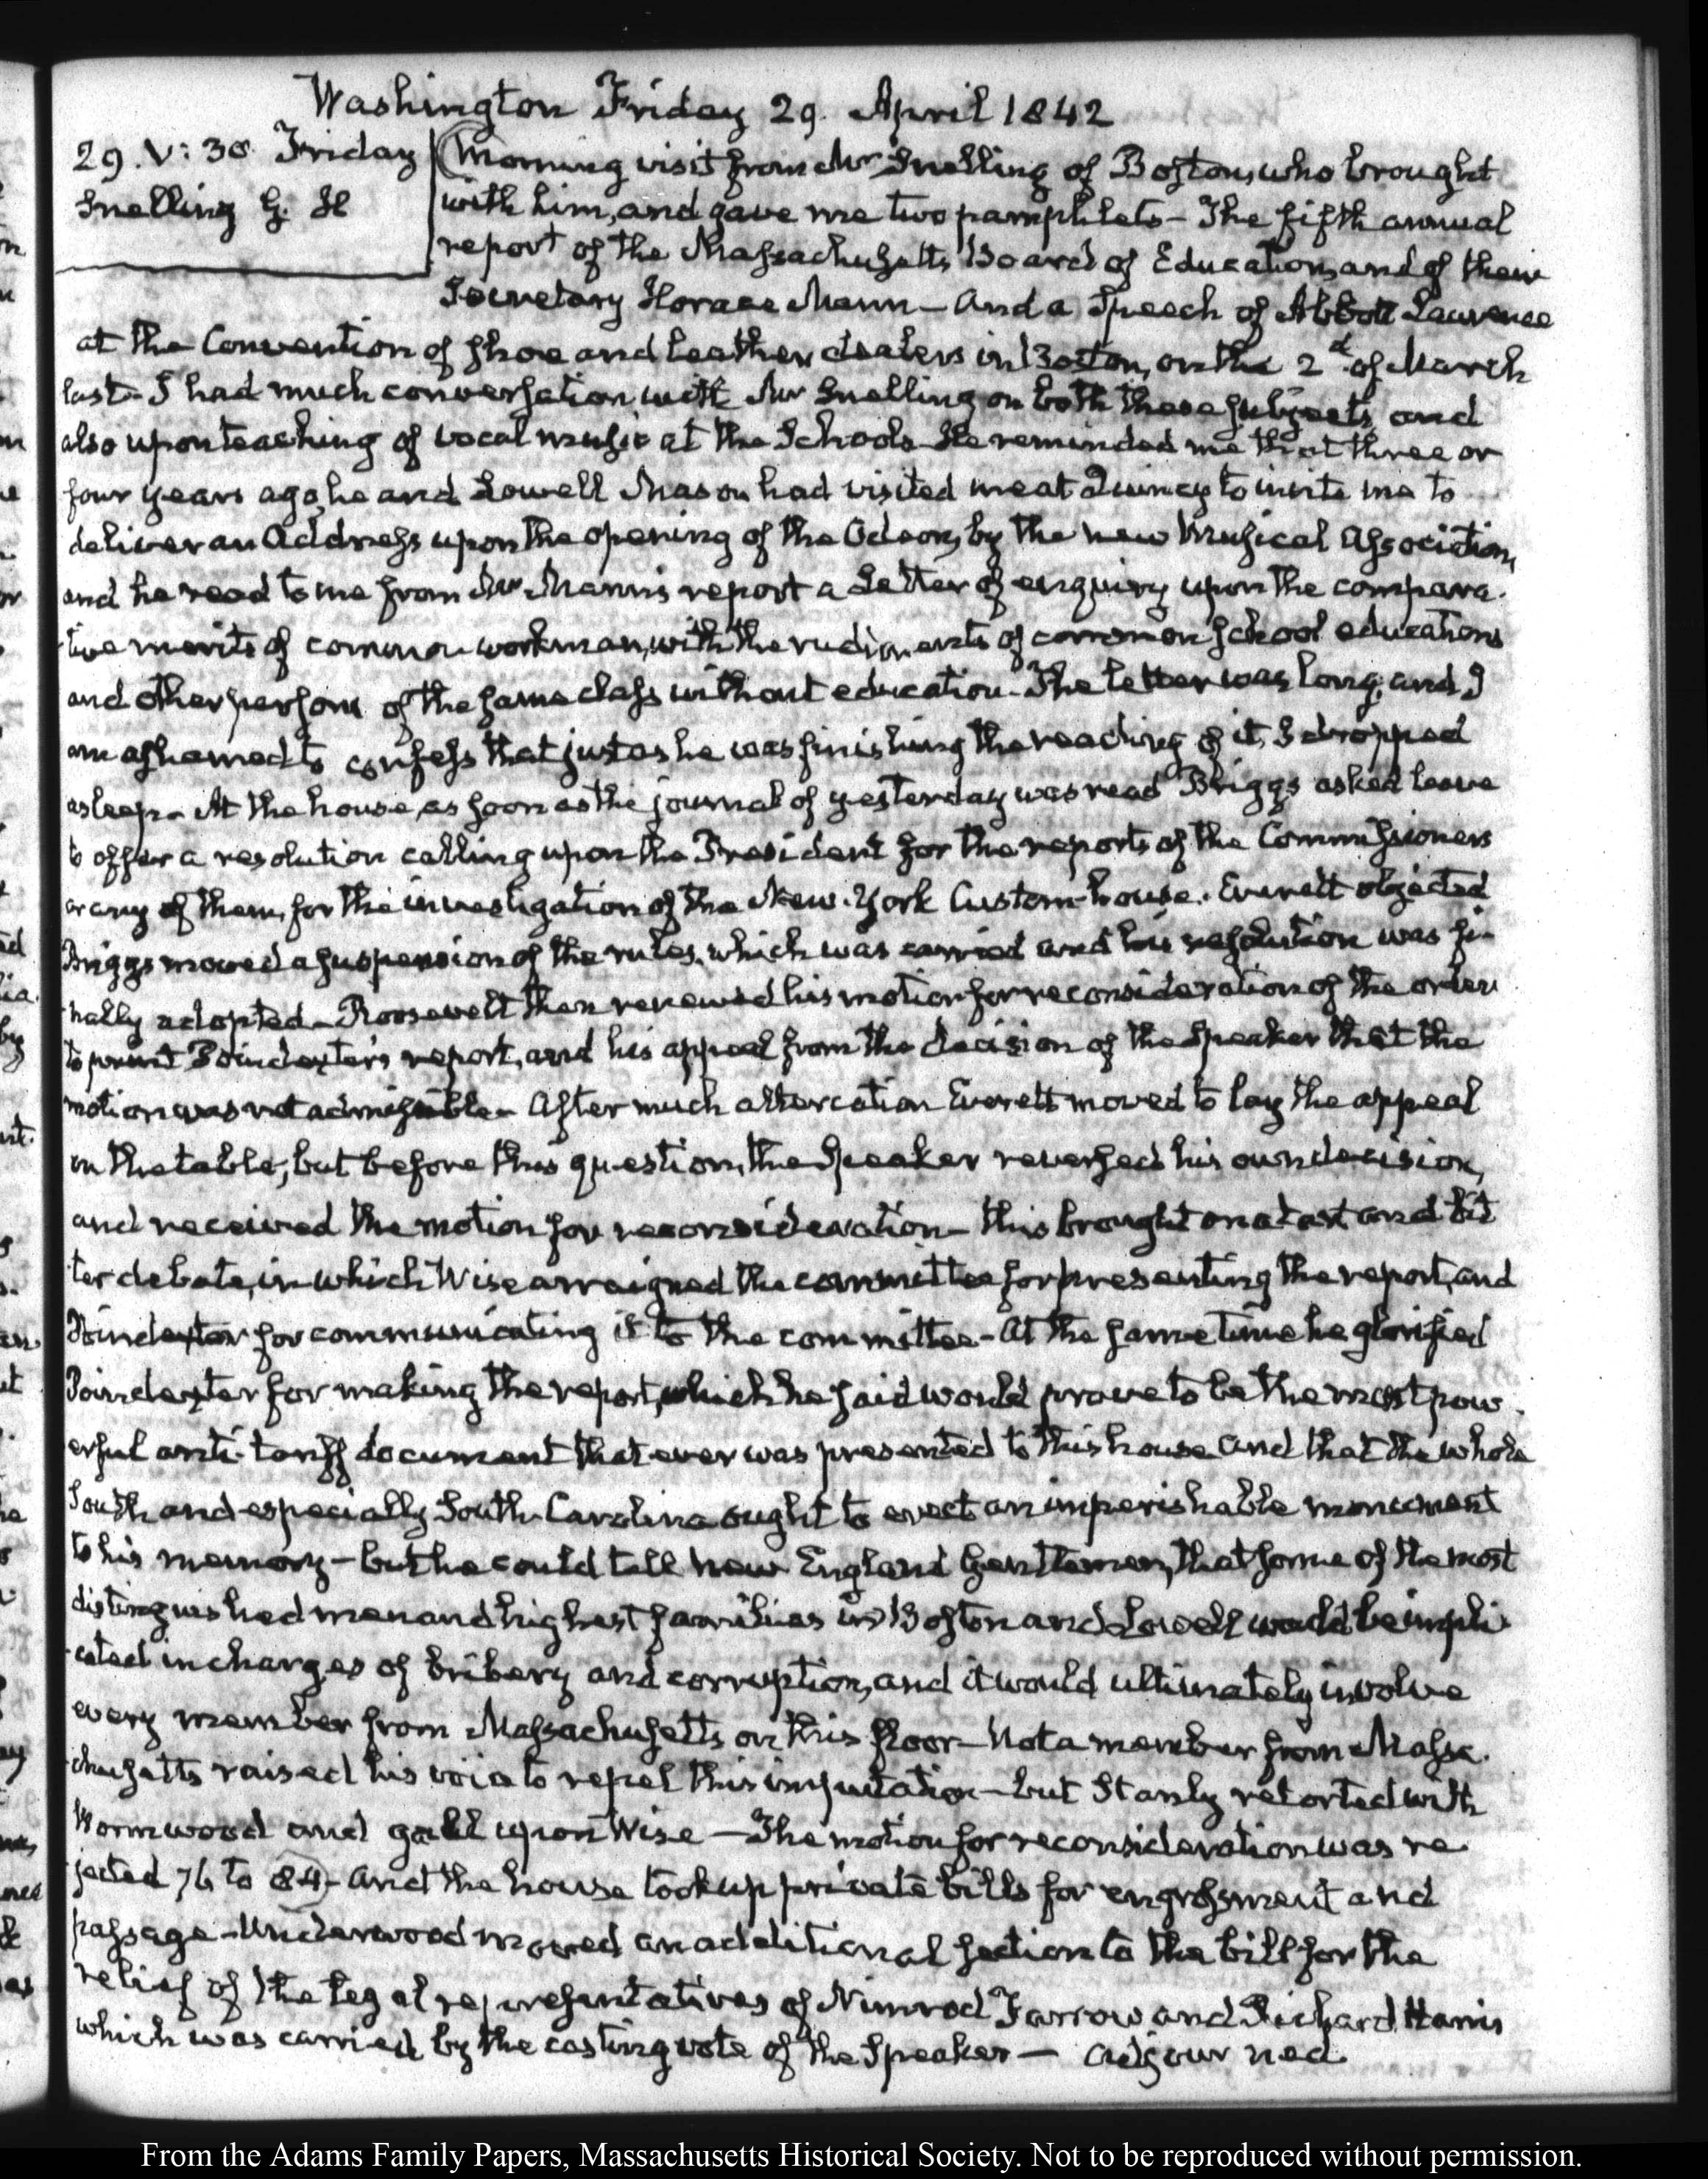 Washington Friday 29. April 1842
29. V: 30. Friday
Snelling G. H
Morning visit from Mr Snelling of Boston, who brought
with him, and gave me two pamphlets – The fifth annual
report of the Massachusetts Board of Education, and of their
Secretary Horace Mann – And a Speech of Abbott Lawrence
at the Convention of shoe and leather dealers in Boston, on the 2d of March
last – I had much conversation with Mr Snelling on both these subjects, and
also upon teaching of vocal music at the Schools – He reminded me that three or
four years ago, he and Lowell Mason had visited me at Quincy to invite me to
deliver an Address upon the opening of the Odeon, by the new Musical Association,
and he read to me from Mr Mann's report a Letter of enquiry upon the compara-
tive merits of common workman, with the rudiments of common school education
and other persons of the same class without education – The letter was long, and I
am ashamed to confess that just as he was finishing the reading of it, I dropped
asleep – At the house, as soon as the journal of yesterday was read Briggs asked leave
to offer a resolution calling upon the President for the reports of the Commissioners
or any of them, for the investigation of the New-York Custom-house. Everett objected
Briggs moved a suspension of the rules, which was carried and his resolution was fi-
nally adopted – Roosevelt then renewed his motion for reconsideration of the order
to print Poindexter's report, and his appeal from the decision of the Speaker that the
motion was not admissible – After much altercation Everett moved to lay the appeal
on the table; but before this question, the Speaker reversed his own decision,
and received the motion for reconsideration – this brought on a tart and bit
ter debate, in which Wise arraigned the committee for presenting the report, and
Poindexter for communicating it to the committee – At the same time he glorified
Poindexter for making the report, which he said would prove to be the most pow-
erful anti-tariff document that ever was presented to this house and that the whole
South and especially South-Carolina ought to erect an imperishable monument
to his memory – but he could tell New England Gentlemen, that some of the most
distinguished men and highest families in Boston and Lowell would be impli-
cated in charges of bribery and corruption, and it would ultimately involve
every member from Massachusetts on this floor – Not a member from Massa-
chusetts raised his voice to repel this imputation – but Stanly retorted with
Wormwood and gall upon Wise – The motion for reconsideration was re-
jected 76 to 84 – And the house took up private bills for engrossment and
passage – Underwood moved an additional section to the bill for the
relief of the legal representatives of Nimrod Farrow and Richard Harris
which was carried by the casting vote of the Speaker – Adjourned.
From the Adams Family Papers, Massachusetts Historical Society. Not to be reproduced without permission.